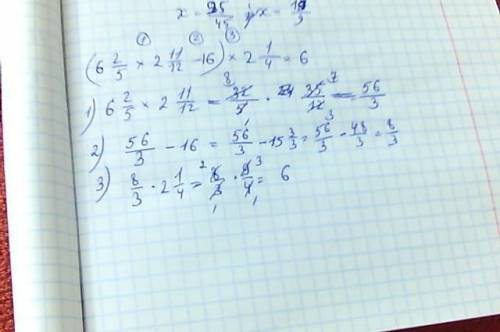 x = 95/45 ; x = 19/3
(6 2/5 × 2 11/12 - 16) × 2 1/4 = 6
1) 6 2/5 × 2 11/12 = 32/5 · 35/12 = 56/3
2) 56/3 - 16 = 56/3 - 15 3/3 = 56/3 - 48/3 = 8/3
3) 8/3 · 2 1/4 = 8/3 · 9/4 = 6